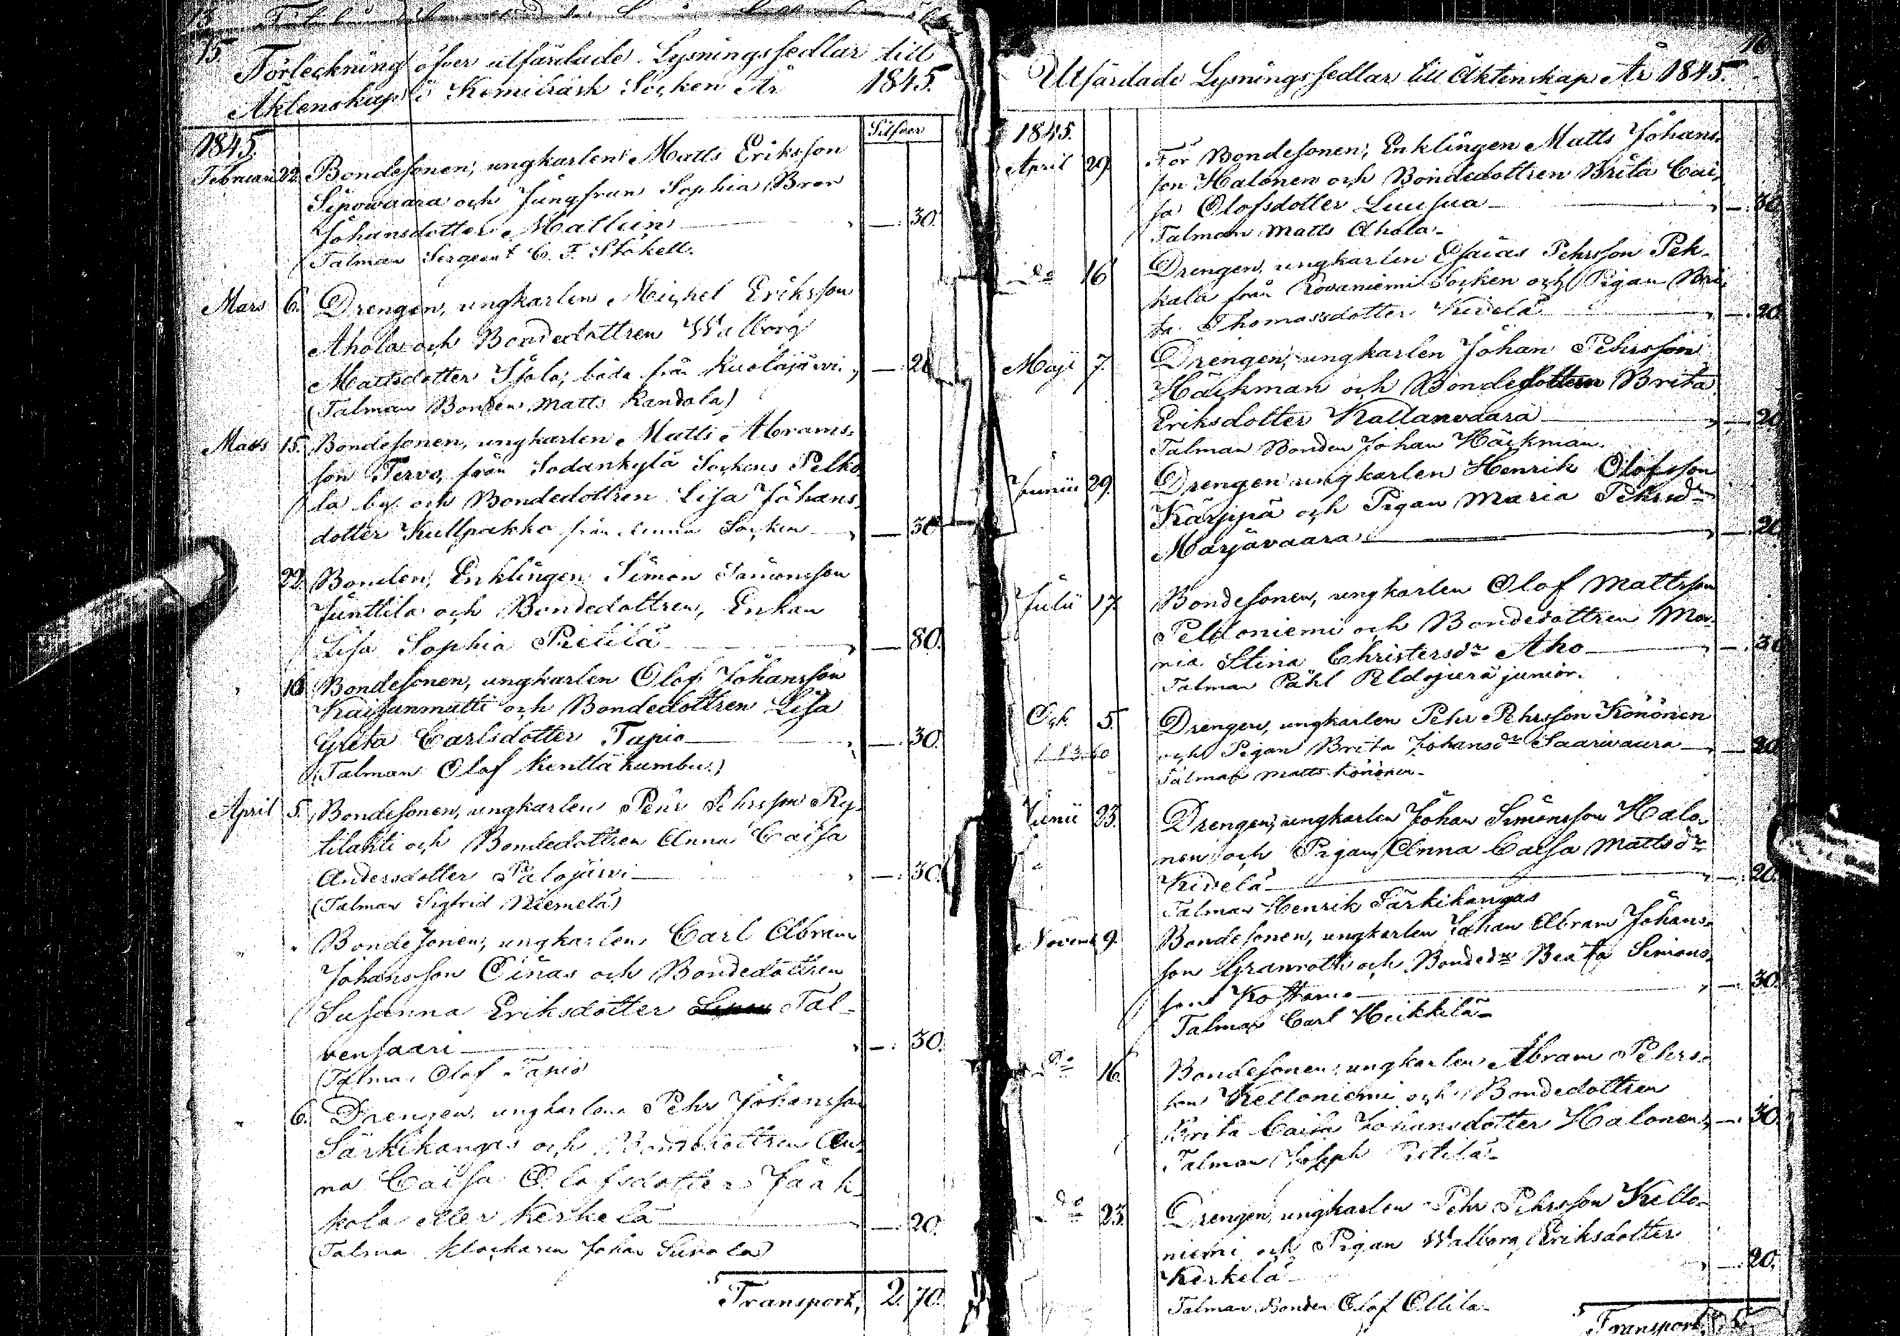 15.
Förteckning öfver utfärdade Lysningssedlar till
Äktenskap i Kemiträsk Socken År 1845.
Silfver
1845.
Februari 22. Bondesonen, ungkarlen Matts Eriksson
Sipowaara och Jungfrun Sophia Bror
Johansdotter Mallein — 30.
Talman Sergeant C. F. Stökell.
Mars 6. Drengen, ungkarlen Michel Eriksson
Ahola och Bondedottren Walborg
Mattsdotter Isola, båda från Kuolajärvi, — 20
(Talman Bonden Matts Kandola)
Mars 15. Bondesonen, ungkarlen Matts Abrams-
son Tervo, från Sodankylä Sockens Pelko
la by och Bondedottren Lisa Johans-
dotter Kullpakko från denna Socken — 30
22. Bonden, Enklingen Simon Simonsson
Junttila och Bondedottren, Enkan
Lisa Sophia Pietilä — 80.
16. Bondesonen, ungkarlen Olof Johansson
Kaisanmatti och Bondedottren Lisa
Greta Carlsdotter Tapio — 30.
(Talman Olof Kenttä)
April 5. Bondesonen, ungkarlen Pehr Pehrsson Ry-
tilahti och Bondedottren Anna Caisa
Andersdotter Palojärvi — 30.
(Talman Sigfrid Niemelä)
" Bondesonen, ungkarlen Carl Abram
Johansson Oinas och Bondedottren
Susanna Eriksdotter Tal-
vensaari — 30.
(Talman Olof Tapio
" 6. Drengen, ungkarlen Pehr Johansson
Särkikangas och Bondedottren An-
na Caisa Olofsdotter Jaak-
kola eller Kerkelä — 20.
(Talman Klockaren Johan Suvola)
Transport, 2. 70.
16
Utfärdade Lysningssedlar till Äktenskap År 1845.
1845.
April 29. För Bondesonen, Enklingen Matts Johans-
son Halonen och Bondedottren Brita Cai-
sa Olofsdotter Luusua — 30.
Talman Matts Ahola.
do 16 Drengen, ungkarlen Esaias Pehrsson Pek-
kala från Rovaniemi Socken och Pigan Bri-
ta Thomasdotter Kivelä — 20.
Maji 7. Drengen, ungkarlen Johan Pehrsson
Häckman och Bondedottren Brita
Eriksdotter Kallanvaara — 20
Talman Bonden Johan Häckman.
Junii 29. Drengen ungkarlen Henrik Olofsson
Karppa och Pigan Maria Pehrsdr
Marjavaara — 20.
Julii 17. Bondesonen, ungkarlen Olof Mattsson
Peltoniemi och Bondedottren Ma-
ria Stina Christersdr Aho — 30
Talman Påhl Peldojerä junior.
Ock 5. Drengen, ungkarlen Pehr Pehrsson Könönen
och Pigan Brita Johansdr Saarivaara — 20
Talman Matts Könönen.
Junii 23. Drengen, ungkarlen Johan Simonsson Halo-
nen och Pigan Anna Caisa Mattsdr
Kivelä — 20.
Talman Henrik Särkikangas
Novemb 9. Bondesonen, ungkarlen Johan Abram Johans-
son Granroth och Bondedr Beata Simons-
Kostamo — 30.
Talman Carl Heikkilä.
do 16. Bondesonen, ungkarlen Abram Pehrs-
son Kelloniemi och Bondedottren
Brita Caisa Johansdotter Halonen, — 30.
Talman Joseph Pietilä.
do 23. Drengen, ungkarlen Pehr Pehrsson Kello-
niemi och Pigan Walborg Eriksdotter
Kerkelä — 20.
Talman Bonden Olof Ollila.
Transport